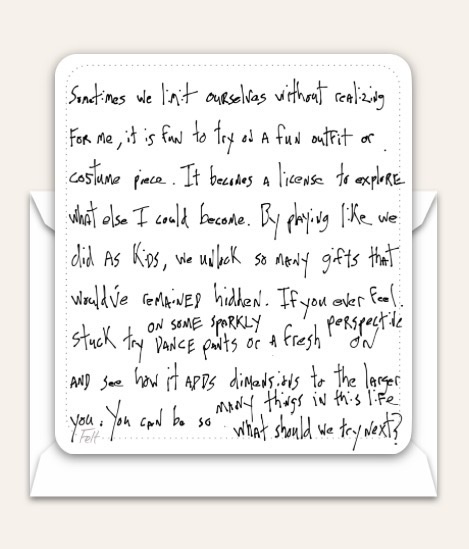 Sometimes we limit ourselves without realizing
For me, it is fun to try on a fun outfit or
costume piece. It becomes a license to explore
what else I could become. By playing like we
did as kids, we unlock so many gifts that
would've remained hidden. If you ever feel
stuck try on some sparkly dance pants or a fresh perspective on
and see how it adds dimensions to the larger
you. You can be so many things in this life
what should we try next?
Felt